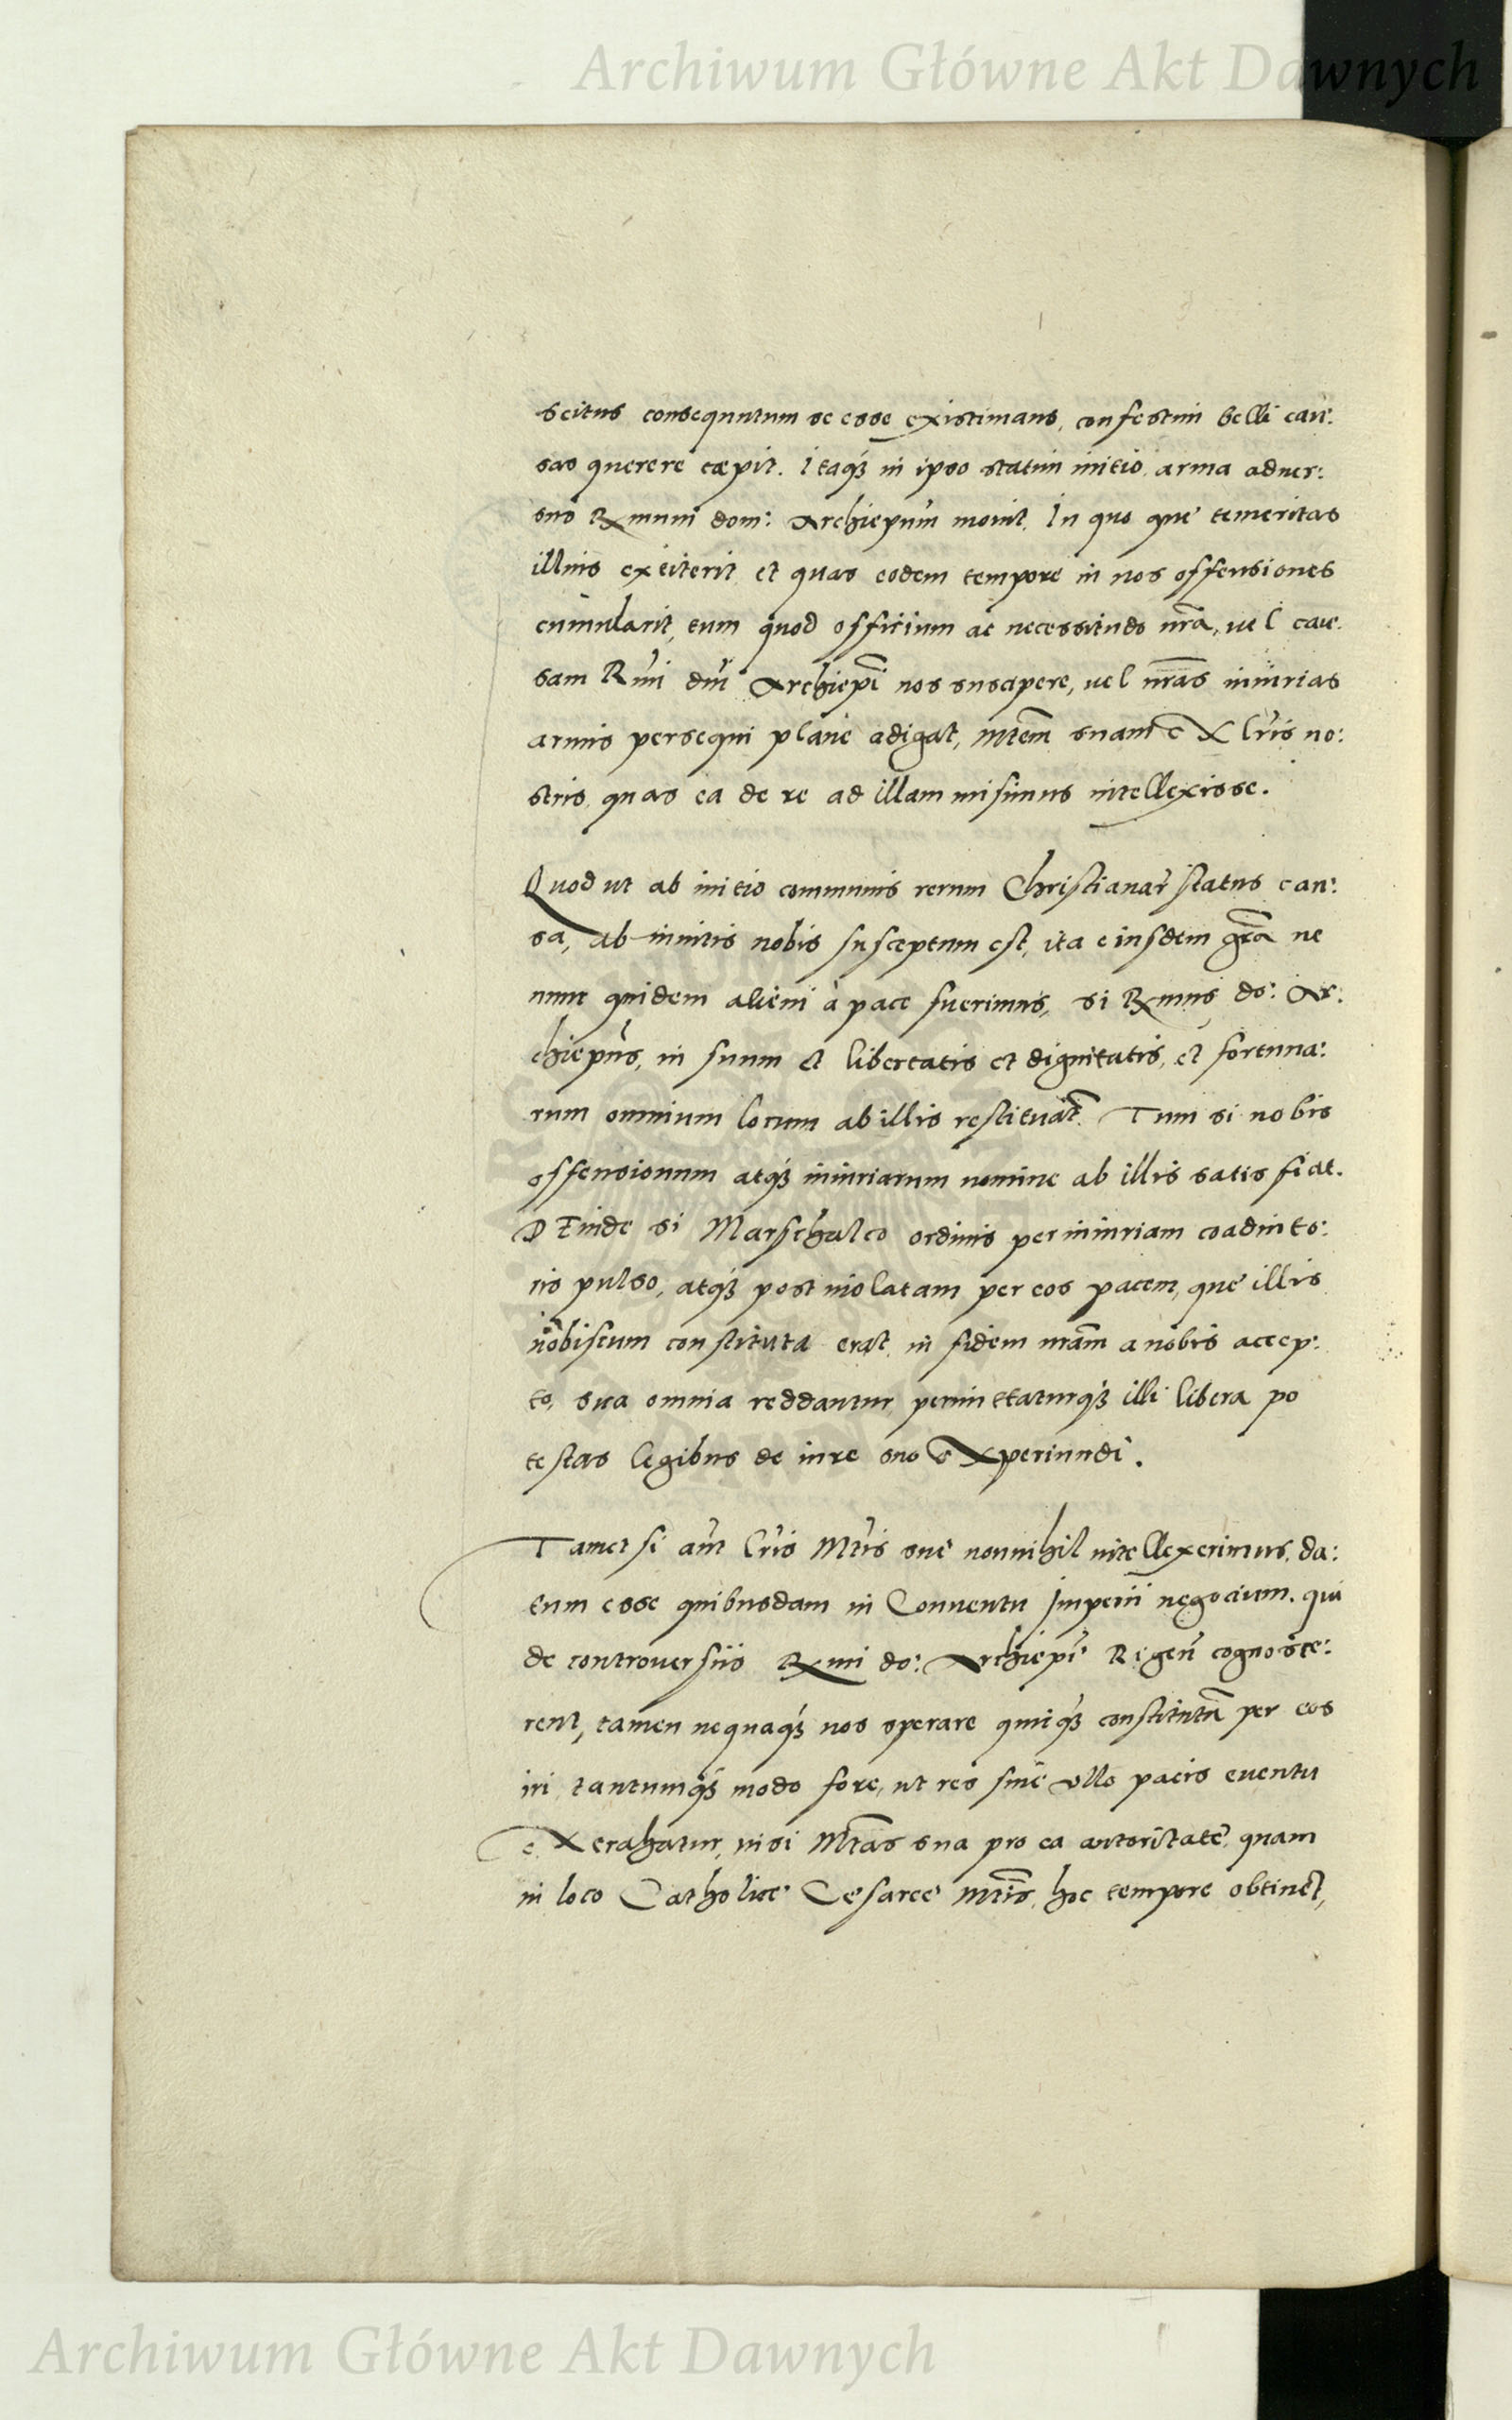 Archiwum Główne Akt Dawnych
scitus consequutum se esse existimans, confestim belli cau:
sas querere cæpit. Itaq₃ in ipso statim initio, arma aduer:
sus Rxmum dom: Archiepum̄ mouit. In quo que temeritas
illius extiterit et quas eodem tempore in nos offensiones
cumularit, cum quod officium ac necessitudo nr̄a, uel cau:
sam Rm̄i dn̄i Archiepī nos suscipere, uel nr̄as iniurias
armis persequi plane adigat, Mtem̄ suam eX Lr̄is no:
stris, quas ea de re ad illam misimus intellexisse.
Quod ut ab initio communis rerum Christianar̄ status cau:
sa, ab inuitis nobis susceptum est, ita eiusdem gr̄a ne
nunc quidem alieni à pace fuerimus, si Rxmus do: Ar:
chiepus̄, in suum et libertatis et dignitatis, et fortuna:
rum omnium locum ab illis restituat̄. Tum si nobis
offensionum atq₃ iniuriarum nomine ab illis satis fiat.
DEinde si Marschalco ordinis per iniuriam coadiuto:
ris pulso, atq₃ post uiolatam per eos pacem, que illis
nobiscum constituta erat, in fidem nr̄am a nobis accep:
to, sua omnia reddantur, permittaturq₃ illi libera po
testas legibus de iure suo eXperiundi.
Tametsi aūt Lr̄is Mtis̄ sue nonnihil intellexerimus, da:
tum esse quibusdam in Conuentu Imperii negocium. qui
de controuersiis Rxmi do: Archiepī Rigen̄ cognosce:
rent, tamen nequaq₃ nos sperare quiq₃ constitutū per eos
iri tantumq₃ modo fore, ut res sine ullo pacis euentu
eXtrahatur, nisi Mtas̄ sua pro ea autoritate, quam
in loco Catholice Cesaree Mtis̄, hoc tempore obtinet,
Archiwum Główne Akt Dawnych